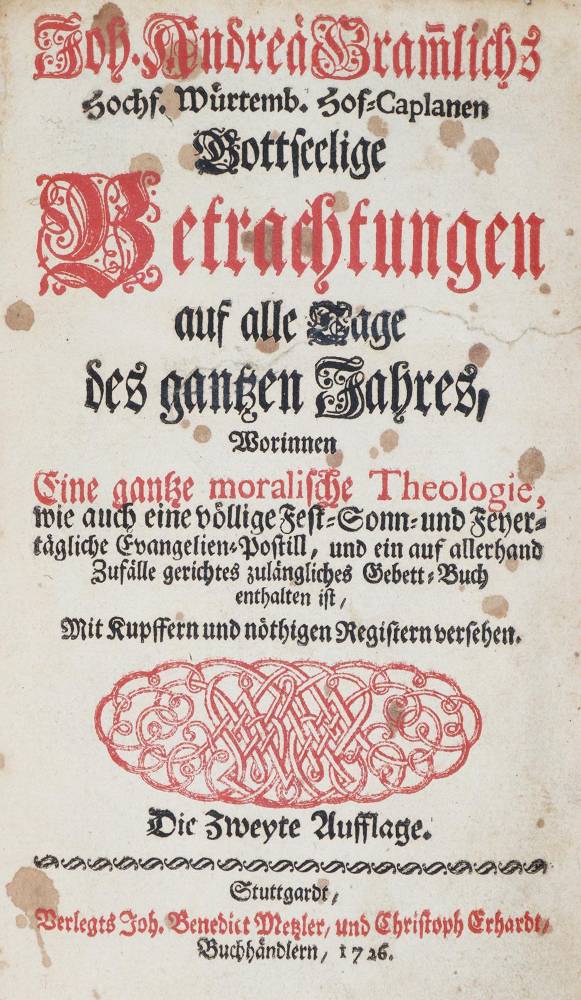 Joh. Andreä Gram̄lichs
Hochf. Würtemb. Hof-Caplanen
Gottseelige
Betrachtungen
auf alle Tage
des gantzen Jahres,
Worinnen
Eine gantze moralische Theologie,
wie auch eine völlige Fest-Sonn- und Feyer-
tägliche Evangelien-Postill, und ein auf allerhand
Zufälle gerichtes zulängliches Gebett-Buch
enthalten ist,
Mit Kupffern und nöthigen Registern versehen.
Die Zweyte Aufflage.
Stuttgardt,
Verlegts Joh. Benedict Metzler, und Christoph Erhardt,
Buchhändlern, 1726.